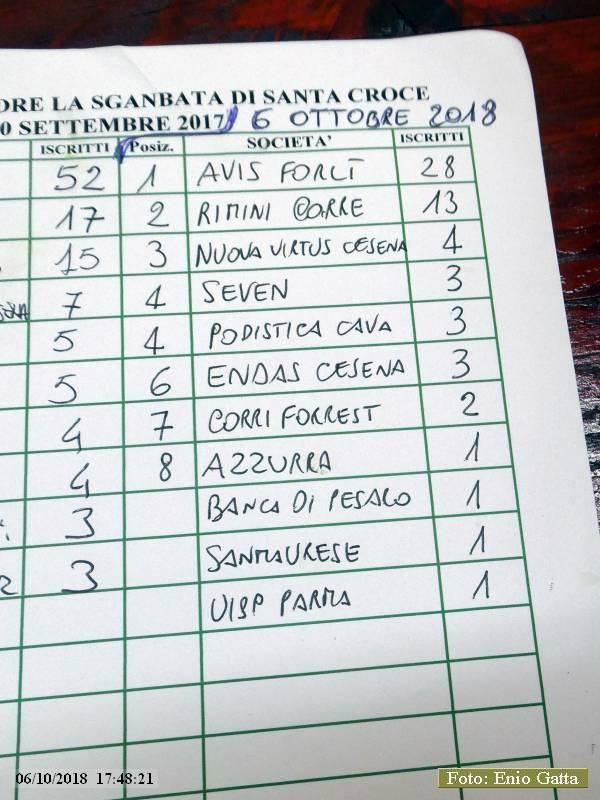 ORE LA SGANBATA DI SANTA CROCE
0 SETTEMBRE 2017 6 OTTOBRE 2018
ISCRITTI Posiz. SOCIETA' ISCRITTI
52 1 AVIS FORLÌ 28
17 2 RIMINI CORRE 13
15 3 NUOVA VIRTUS CESENA 4
7 4 SEVEN 3
5 4 PODISTICA CAVA 3
5 6 ENDAS CESENA 3
4 7 CORRI FORREST 2
4 8 AZZURRA 1
3 BANCA DI PESARO 1
3 SANMAURESE 1
UISP PARMA 1
06/10/2018 17:48:21
Foto: Enio Gatta